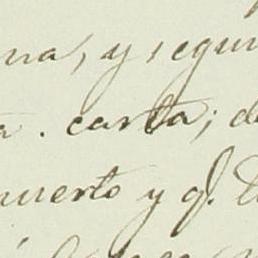 na, y segun
a . carta; d
muerto y q.